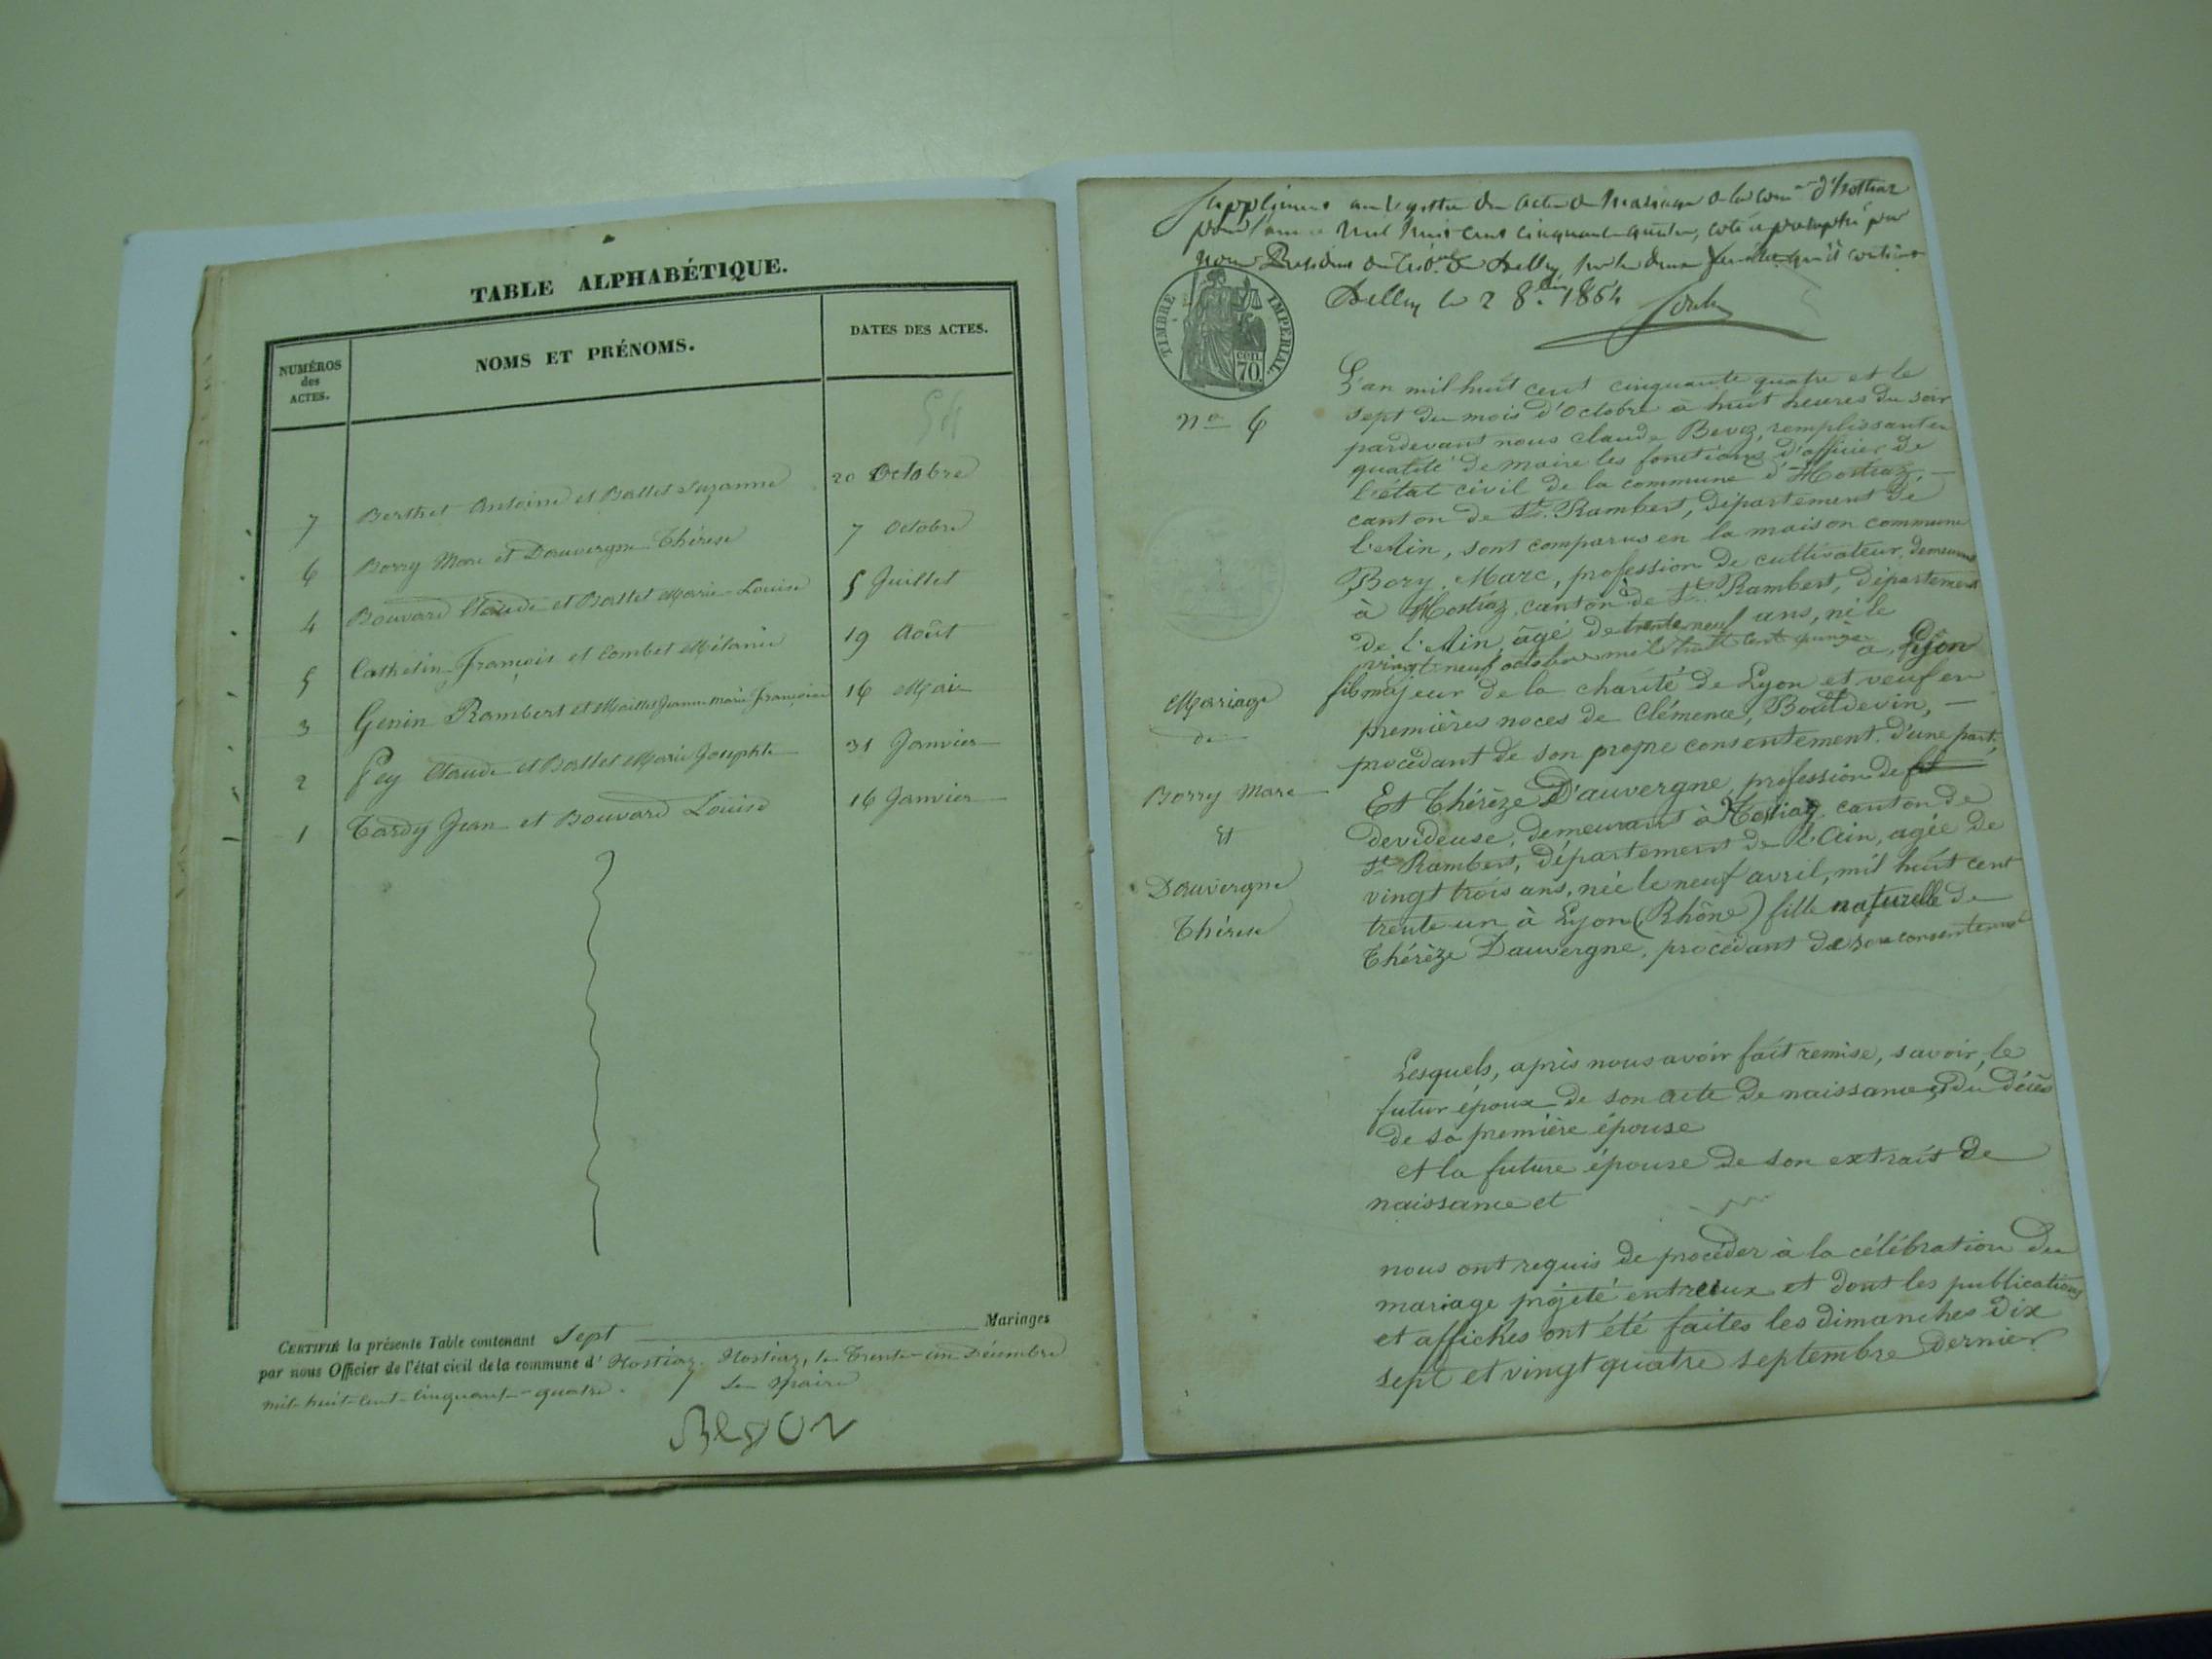 TABLE ALPHABÉTIQUE.
NUMÉROS des ACTES.
NOMS ET PRÉNOMS.
DATES DES ACTES.
54
7 Berthet Antoine et Ballet Suzanne 20 Octobre
6 Borry Marc et Dauvergne Thérèse 7 Octobre
4 Bouvard Claude et Ballet Marie-Louise 5 Juillet
5 Cathelin François et Combet Mélanie 19 Août
3 Genin Rambert et Maillet Jeanne Marie Françoise 16 Mai
2 Pey Claude et Ballet Marie Josephte 31 Janvier
1 Tardy Jean et Bouvard Louise 16 Janvier
CERTIFIÉ la présente Table contenant Sept Mariages
par nous Officier de l'état civil de la commune d'Hostiaz. Hostiaz, le Trente-un Décembre
mil-huit-cent-cinquante-quatre. Le Maire
Bevoz
Supplément au registre des actes de Mariage de la comne d'Hostiaz
pour l'année Mil huit cent cinquante quatre, coté et paraphé par
nous Président du trib. de Belley, sur les deux feuilles qu'il contient
Belley le 2 8bre 1854
TIMBRE IMPERIAL
CEN. 70
No 6
L'an mil huit cent cinquante quatre et le
sept du mois d'Octobre à huit heures du soir
pardevant nous Claude Bevoz, remplissant en
qualité de maire les fonctions d'officier de
l'état civil de la commune d'Hostiaz,
canton de St. Rambert, département de
l'Ain, sont comparus en la maison commune
Bory Marc, profession de cultivateur, demeurant
à Hostiaz, canton de St Rambert, département
de l'Ain, âgé de trente neuf ans, né le
vingt neuf octobre mil huit cent quinze à Lyon
fils majeur de la charité de Lyon et veuf en
premières noces de Clémence, Boutdevin,
procédant de son propre consentement. d'une part.
Mariage
de
Borry Marc
Et
Dauvergne
Thérèse
Et Thérèze D'auvergne, profession de fil
devideuse, demeurant à Hostiaz canton de
St Rambert, département de l'Ain, agée de
vingt trois ans, née le neuf avril, mil huit cent
trente un à Lyon (Rhône) fille naturelle de
Thérèze Dauvergne, procédant de son consentement
Lesquels, après nous avoir fait remise, savoir, le
futur époux de son acte de naissance et du décès
de sa première épouse
et la future épouse de son extrait de
naissance et
nous ont requis de procéder à la célébration du
mariage projeté entreeux et dont les publications
et affiches ont été faites les dimanches dix
sept et vingt quatre septembre dernier